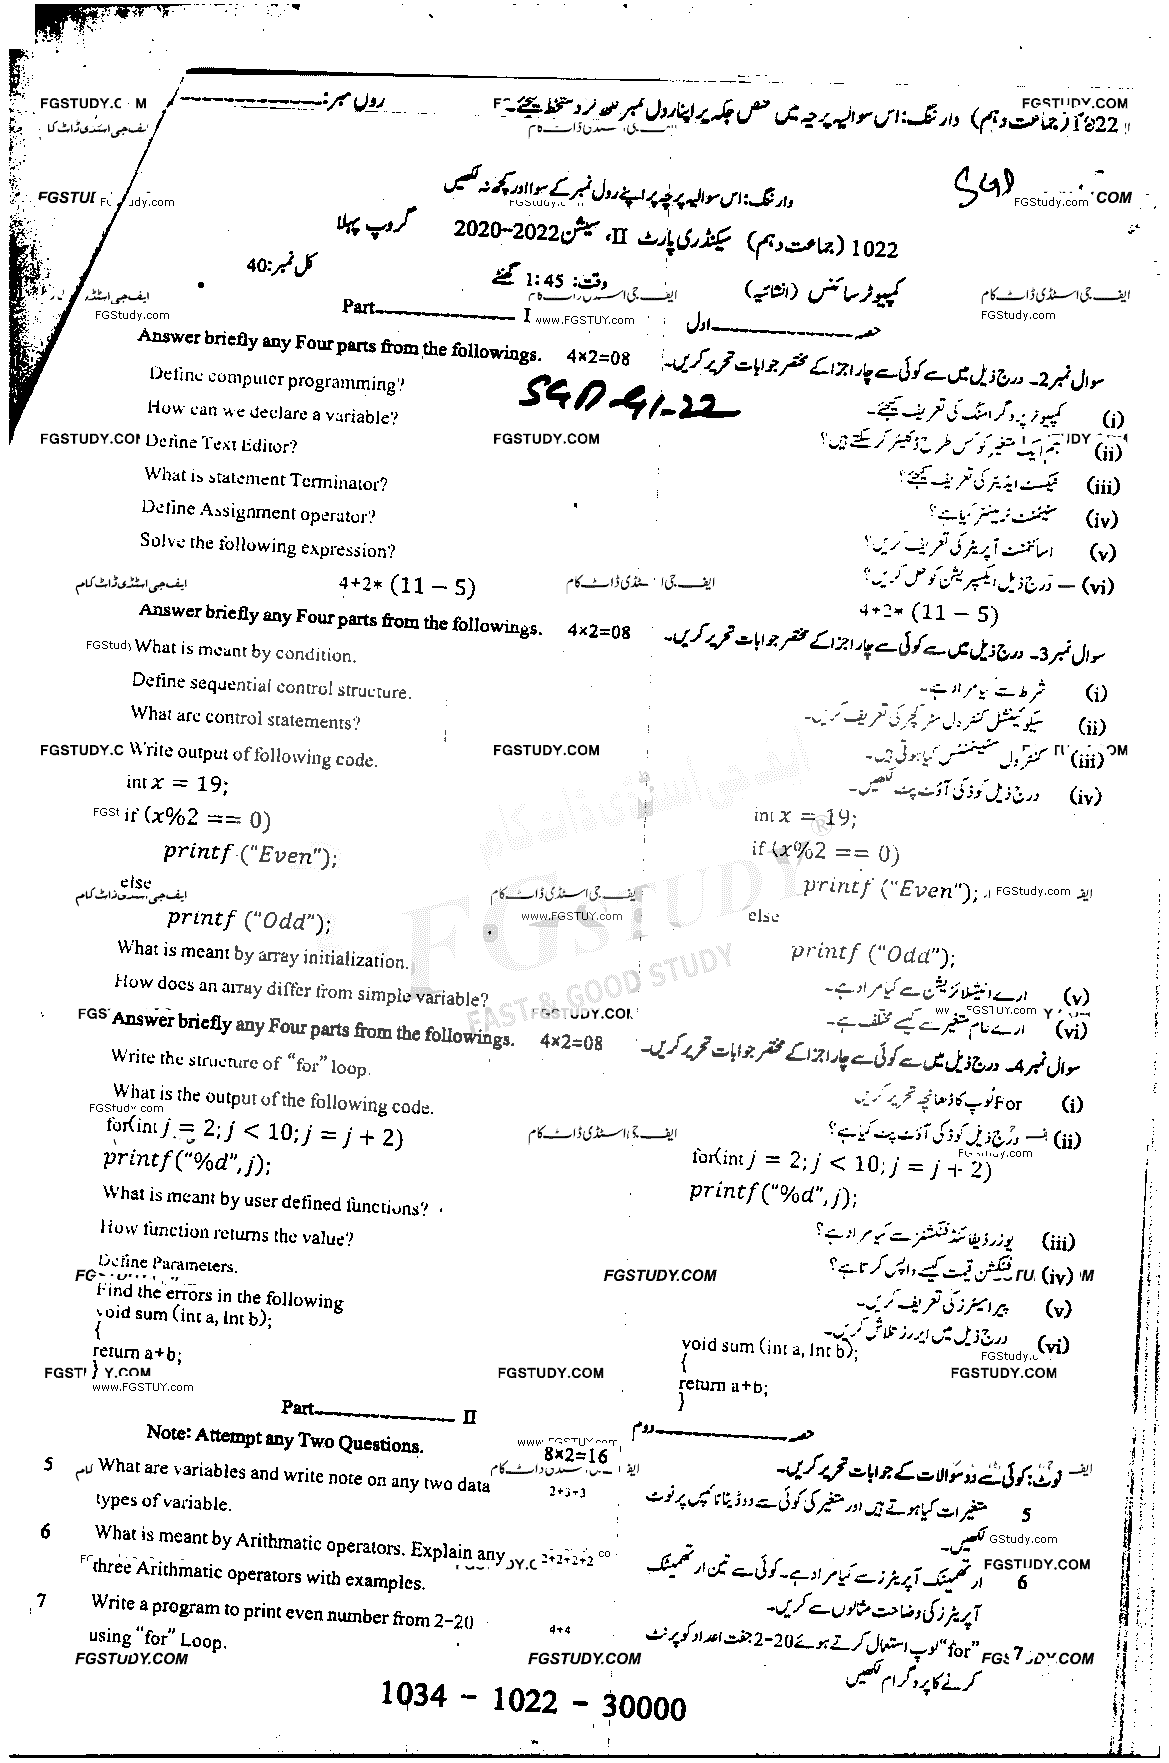 FGSTUDY.COM
رول نمبر:
1022 (جماعت دہم) وارننگ: اس سوالیہ پرچہ میں مختص جگہ پر اپنا رول نمبر لکھ کر دستخط کیجئے۔
ایف جی اسٹڈی ڈاٹ کام
SGD
وارننگ: اس سوالیہ پرچہ پر اپنے رول نمبر کے سوا اور کچھ نہ لکھیں
FGStudy.com
1022 (جماعت دہم) سیکنڈری پارٹ II، سیشن 2020-2022 گروپ پہلا
کمپیوٹر سائنس (انشائیہ) وقت: 1:45 گھنٹے کل نمبر: 40
Part I حصہ اول
www.FGSTUY.com
Answer briefly any Four parts from the followings. 4×2=08 سوال نمبر 2۔ درج ذیل میں سے کوئی سے چار اجزا کے مختصر جوابات تحریر کریں۔
Define computer programming? (i) کمپیوٹر پروگرامنگ کی تعریف کیجئے۔
SGD-G1-22
How can we declare a variable? (ii) ہم ایک متغیر کو کس طرح ڈکلیئر کر سکتے ہیں؟
FGSTUDY.COM
Define Text Editor? (iii) ٹیکسٹ ایڈیٹر کی تعریف کیجئے؟
What is statement Terminator? (iv) سٹیٹمنٹ ٹرمینیٹر کیا ہے؟
Define Assignment operator? (v) اسائنمنٹ آپریٹر کی تعریف کریں؟
Solve the following expression? (vi) درج ذیل ایکسپریشن کو حل کریں؟
4+2* (11 – 5) 4+2* (11 – 5)
Answer briefly any Four parts from the followings. 4×2=08 سوال نمبر 3۔ درج ذیل میں سے کوئی سے چار اجزا کے مختصر جوابات تحریر کریں۔
What is meant by condition. (i) شرط سے کیا مراد ہے۔
Define sequential control structure. (ii) سیکوئینشل کنٹرول سٹرکچر کی تعریف کریں۔
What are control statements? (iii) کنٹرول سٹیٹمنٹس کیا ہوتی ہیں۔
FGSTUDY.COM
Write output of following code. (iv) درج ذیل کوڈ کی آؤٹ پٹ لکھیں۔
int x = 19; int x = 19;
if (x%2 == 0) if (x%2 == 0)
printf ("Even"); printf ("Even");
else else
printf ("Odd"); printf ("Odd");
ایف جی اسٹڈی ڈاٹ کام
FGSTUDY
FAST & GOOD STUDY
What is meant by array initialization. (v) ارے انیشلائزیشن سے کیا مراد ہے۔
How does an array differ from simple variable? (vi) ارے عام متغیر سے کیسے مختلف ہے۔
Answer briefly any Four parts from the followings. 4×2=08 سوال نمبر 4۔ درج ذیل میں سے کوئی سے چار اجزا کے مختصر جوابات تحریر کریں۔
Write the structure of “for” loop. (i) For لوپ کا ڈھانچہ تحریر کریں
What is the output of the following code. (ii) درج ذیل کوڈ کی آؤٹ پٹ کیا ہے؟
for(int j = 2; j < 10; j = j + 2) for(int j = 2; j < 10; j = j + 2)
printf("%d", j); printf("%d", j);
What is meant by user defined functions? (iii) یوزر ڈیفائنڈ فنکشنز سے کیا مراد ہے؟
How function returns the value? (iv) فنکشن قیمت کیسے واپس کرتا ہے؟
Define Parameters. (v) پیرامیٹرز کی تعریف کریں۔
FGSTUDY.COM
Find the errors in the following (vi) درج ذیل میں ایررز تلاش کریں۔
void sum (int a, Int b); void sum (int a, Int b);
{ {
return a+b; return a+b;
} }
FGSTUDY.COM
www.FGSTUY.com
Part II حصہ دوم
Note: Attempt any Two Questions. 8×2=16 نوٹ: کوئی سے دو سوالات کے جوابات تحریر کریں۔
5 What are variables and write note on any two data 2+3+3 5 متغیرات کیا ہوتے ہیں اور متغیر کی کوئی سے دو ڈیٹا ٹائپس پر نوٹ
types of variable. لکھیں۔
6 What is meant by Arithmatic operators. Explain any 2+2+2+2 6 ارتھمیٹک آپریٹرز سے کیا مراد ہے۔ کوئی سے تین ارتھمیٹک
three Arithmatic operators with examples. آپریٹرز کی وضاحت مثالوں سے کریں۔
7 Write a program to print even number from 2-20 4+4 7 “for” لوپ استعمال کرتے ہوئے 2-20 جفت اعداد کو پرنٹ
using “for” Loop. کرنے کا پروگرام لکھیں
FGSTUDY.COM FGSTUDY.COM
1034 – 1022 – 30000